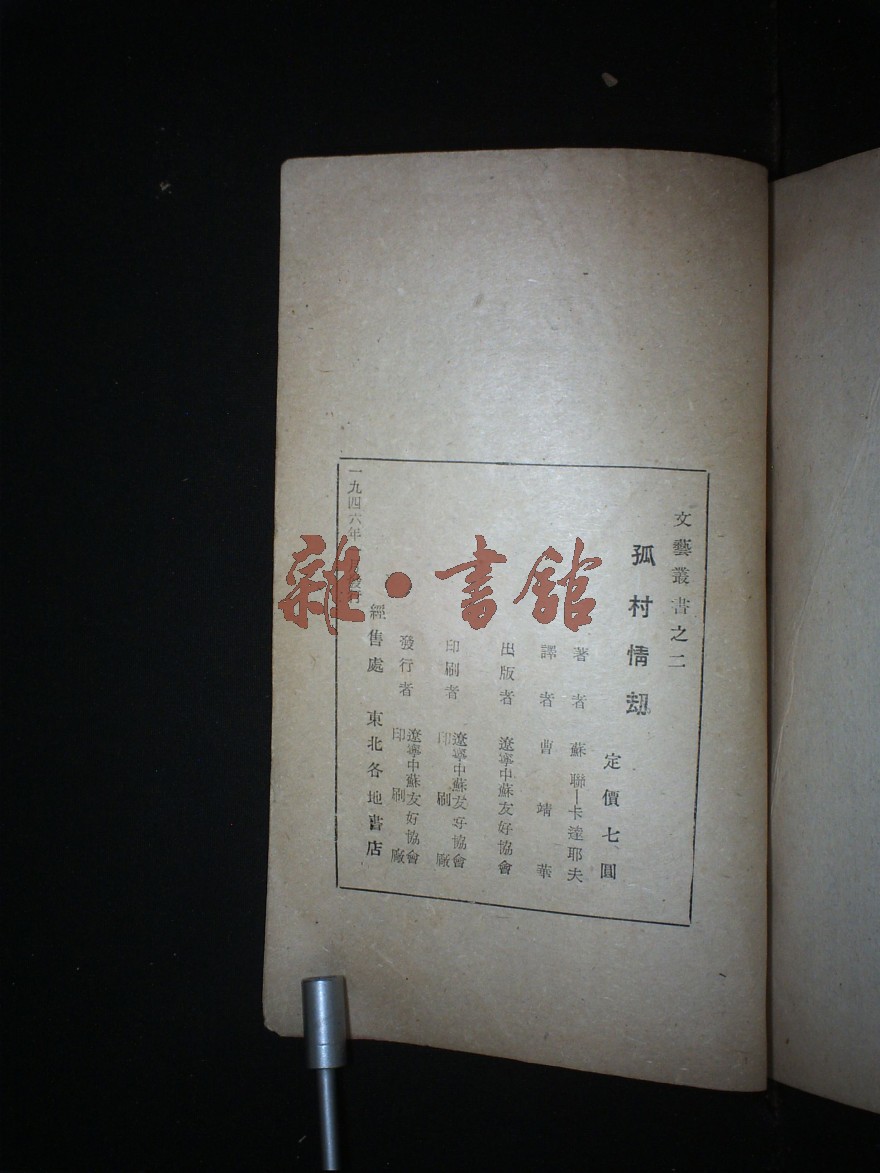 文藝叢書之二
孤村情劫
定價七圓
著者 蘇聯—卡達耶夫
譯者 曹靖華
出版者 遼寧中蘇友好協會
印刷者 遼寧中蘇友好協會
印刷廠
發行者 遼寧中蘇友好協會
印刷廠
經售處 東北各地書店
一九四六年 月發行
雜·書館